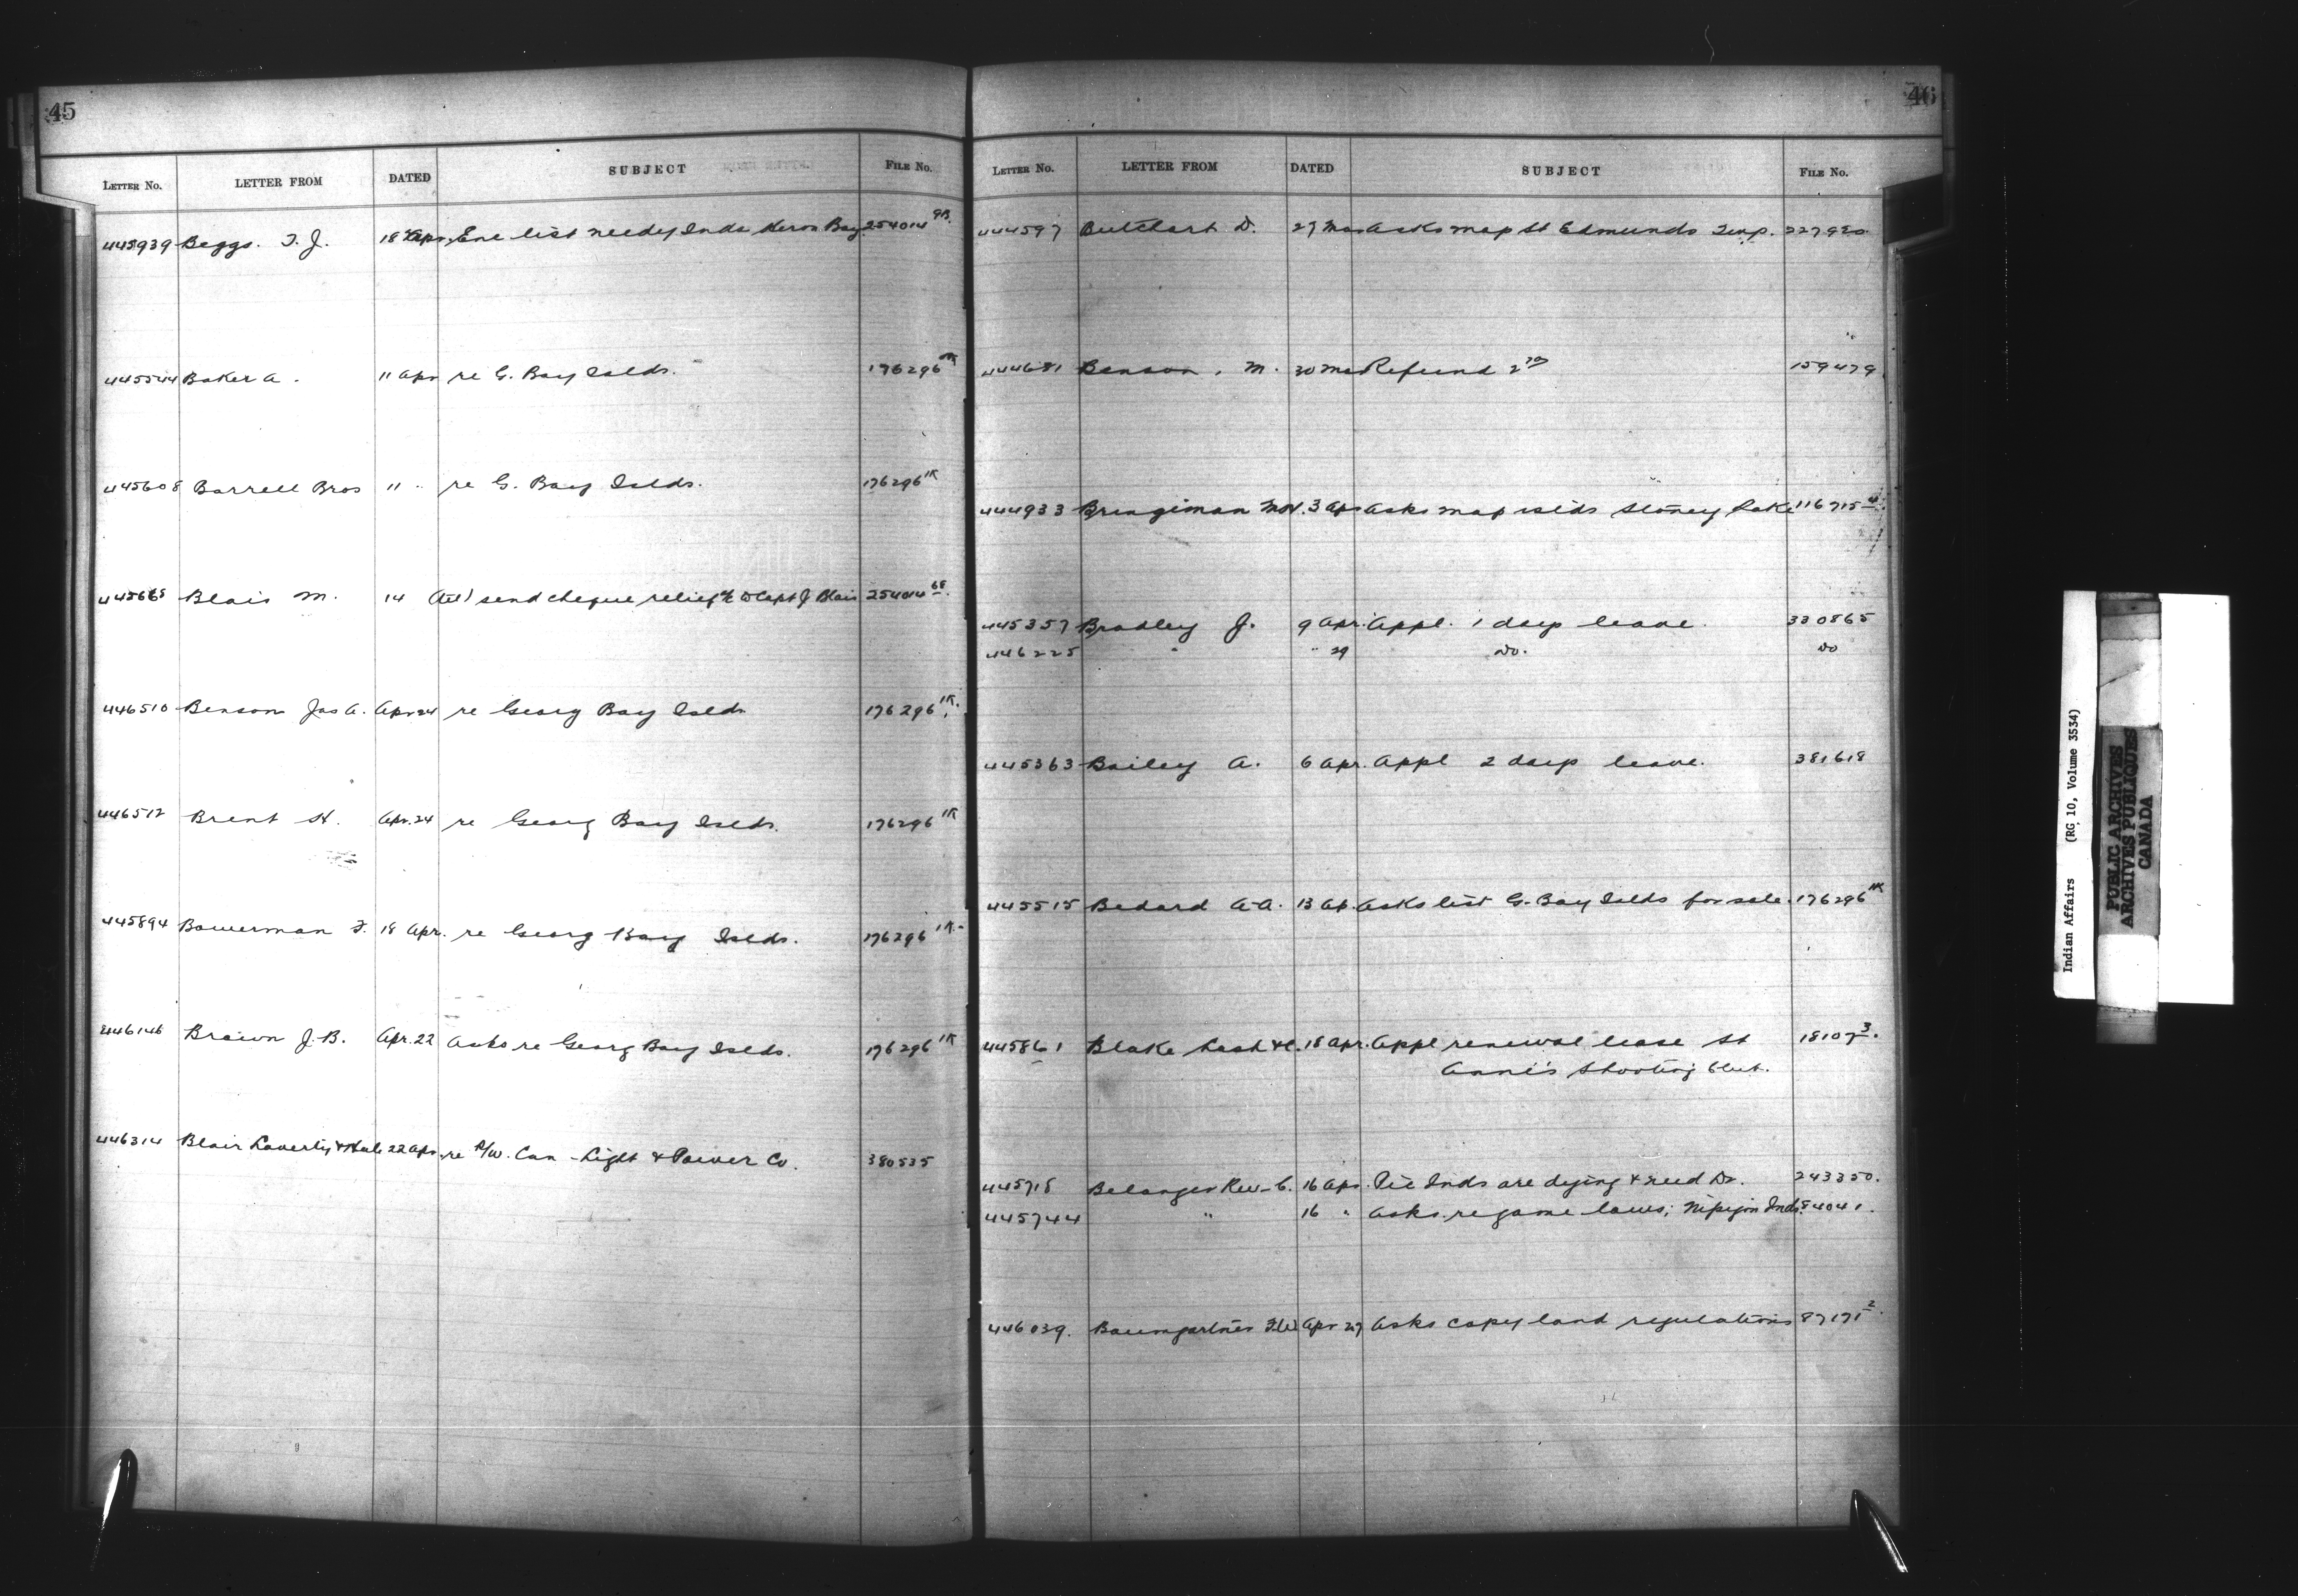 45
LETTER No. LETTER FROM DATED SUBJECT FILE No.
445939 Beggs. T. J. 18 Apr. Enc list needy Inds Keron Bay. 254014 9B.
445544 Baker A. 11 Apr re G. Bay Islds. 176296 1K
445608 Barrell Bros 11 " re G. Bay Islds. 176296 1K
445665 Blais M. 14 send cheque relief a/c to Capt J Blais 254014 68.
446510 Benson Jas A. Apr 24 re Georg Bay Islds 176296 1K.
446512 Brent H. Apr. 24 re Georg Bay Islds. 176296 1K
445894 Bowerman F. 18 Apr. re Georg Bay Islds. 176296 1K.
446146 Brown J. B. Apr. 22 Asks re Georg Bay Islds. 176296 1K
446314 Blair Laverty & Hale 22 Apr. re P/W. Can - Light & Power Co. 380535
46
LETTER No. LETTER FROM DATED SUBJECT FILE No.
444597 Butchart D. 27 Mar Asks map St Edmunds Twp. 227920.
444681 Benson, M. 30 Mar Refund 2 159479
444933 Bringiman 3 Apr Asks map islds Stoney Lake 116715 4.
445357 Bradley J. 9 Apr. Appl. 1 days leave. 330865
446225 " " 29 Do. Do
445363 Bailey A. 6 Apr. Appl 2 days leave. 381618
445515 Bedard A-A. 13 Ap. Asks list G. Bay Islds for sale. 176296 1K
445861 Blake Lash & C. 18 Apr. Appl renewal lease St 18107 3.
Anne's Shooting Club.
445718 Belanger Rev. C. 16 Apr. Pic Inds are dying & need Dr. 243350.
445744 " 16 " Asks re game laws; Nipigon Inds. 84041.
446039. Baumgartner F.W. Apr 27 Asks copy land regulations 87171 2.
Indian Affairs (RG 10, Volume 3534)
PUBLIC ARCHIVES
ARCHIVES PUBLIQUES
CANADA